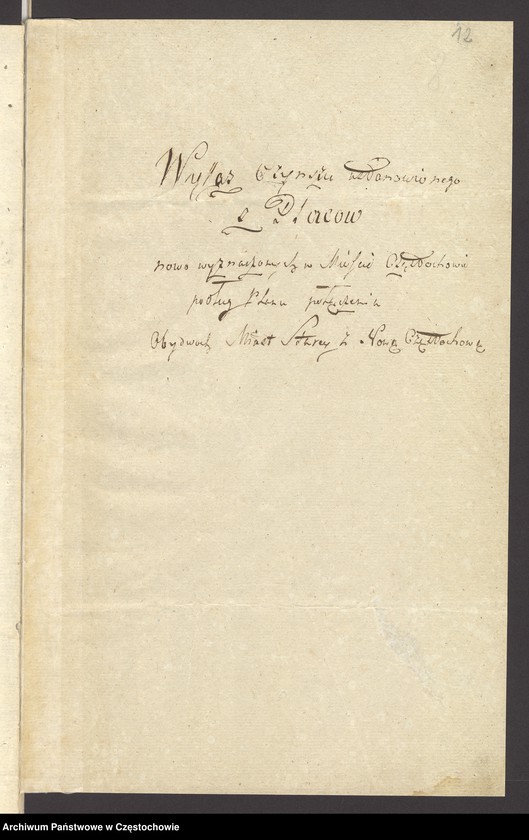 12
Wykaz Czynszu ustanowionego
z Placow
nowo wyznaczonych w Mieście Częstochowie
podług Planu połączenia
Obydwoch Miast Starey z Nową Częstochową
Archiwum Państwowe w Częstochowie